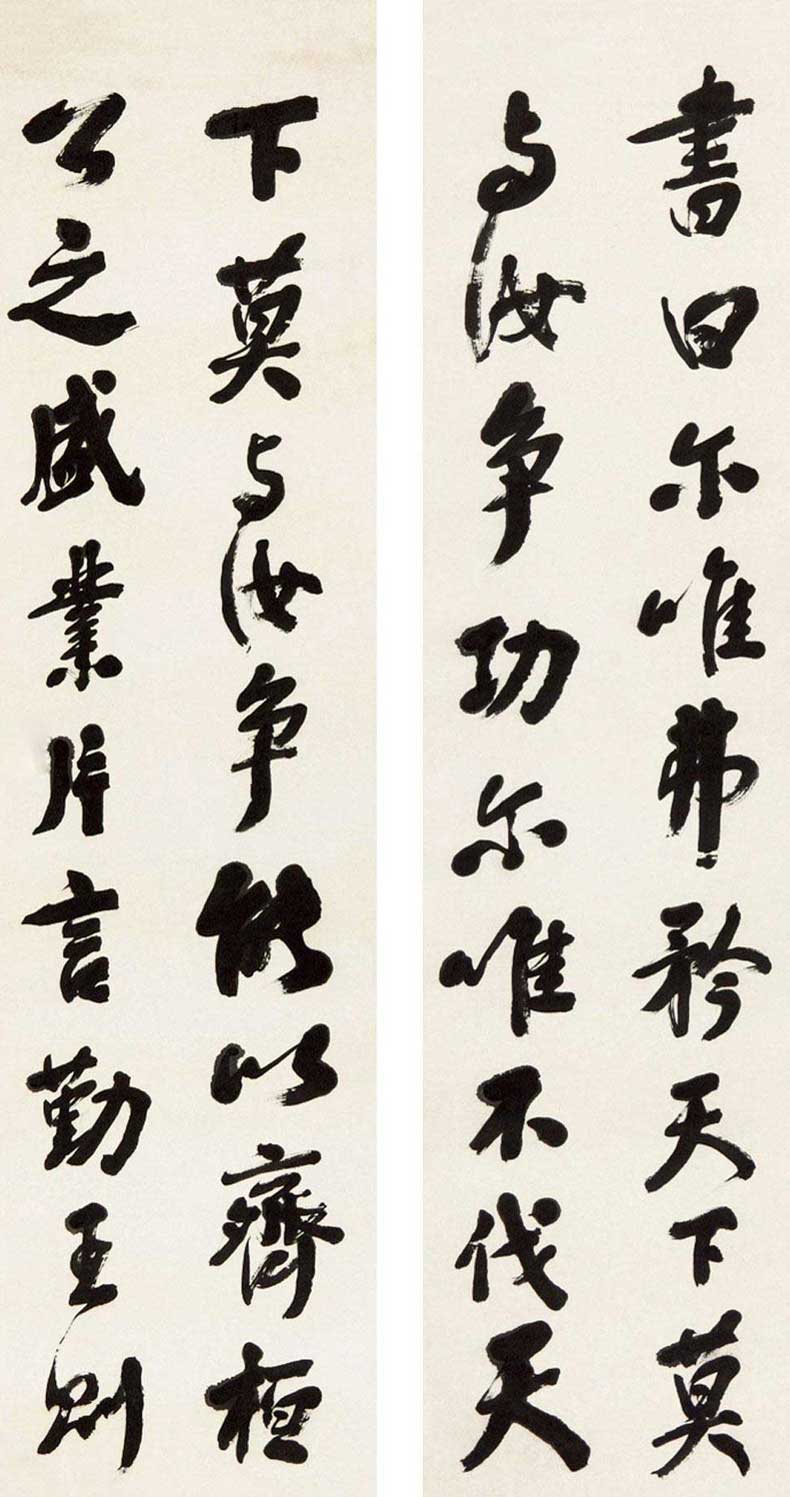 書曰尔唯弗矜天下莫
与汝争功尔唯不伐天
下莫与汝争能以齊桓
公之盛業片言勤王則